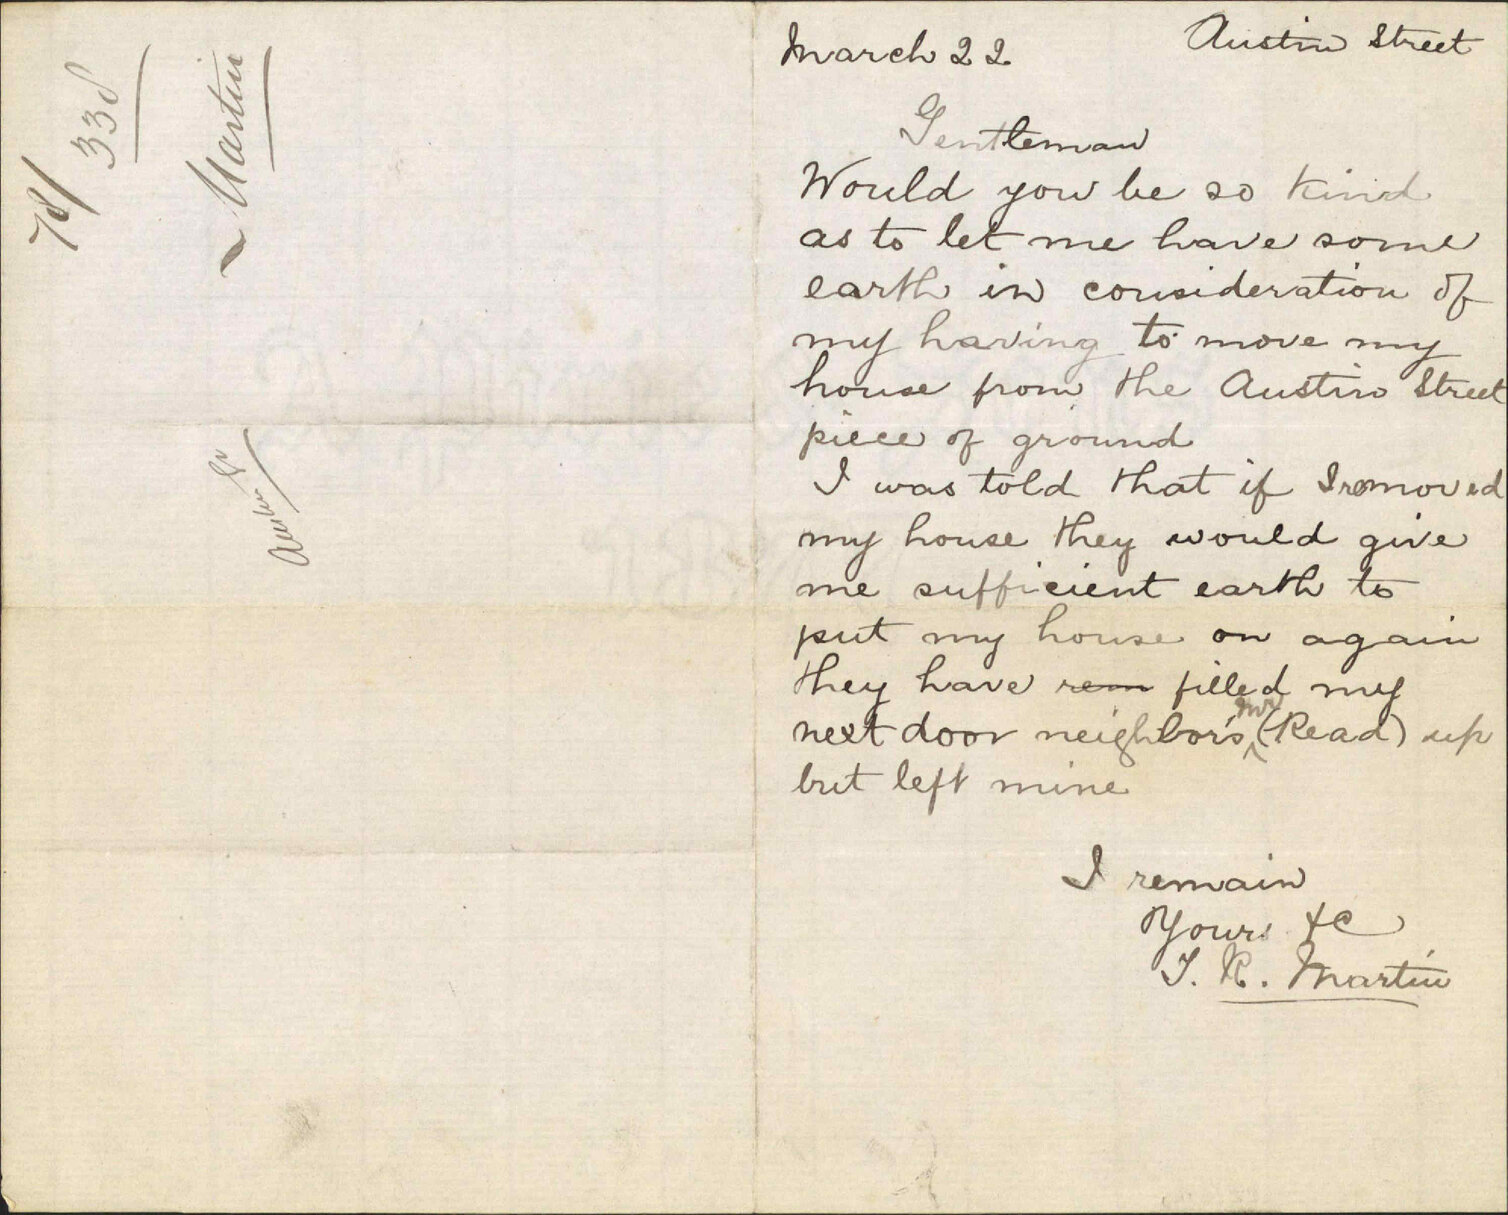 78/
338
Martin
Austin St
March 22
Austin Street
Gentleman
Would you be so kind
as to let me have some
earth in consideration of
my having to move my
house from the Austin Street
piece of ground
I was told that if I removed
my house they would give
me sufficient earth to
put my house on again
they have rem filled my
next door neighbor's Mr (Read) up
but left mine
I remain
Yours &C
T. R. Martin